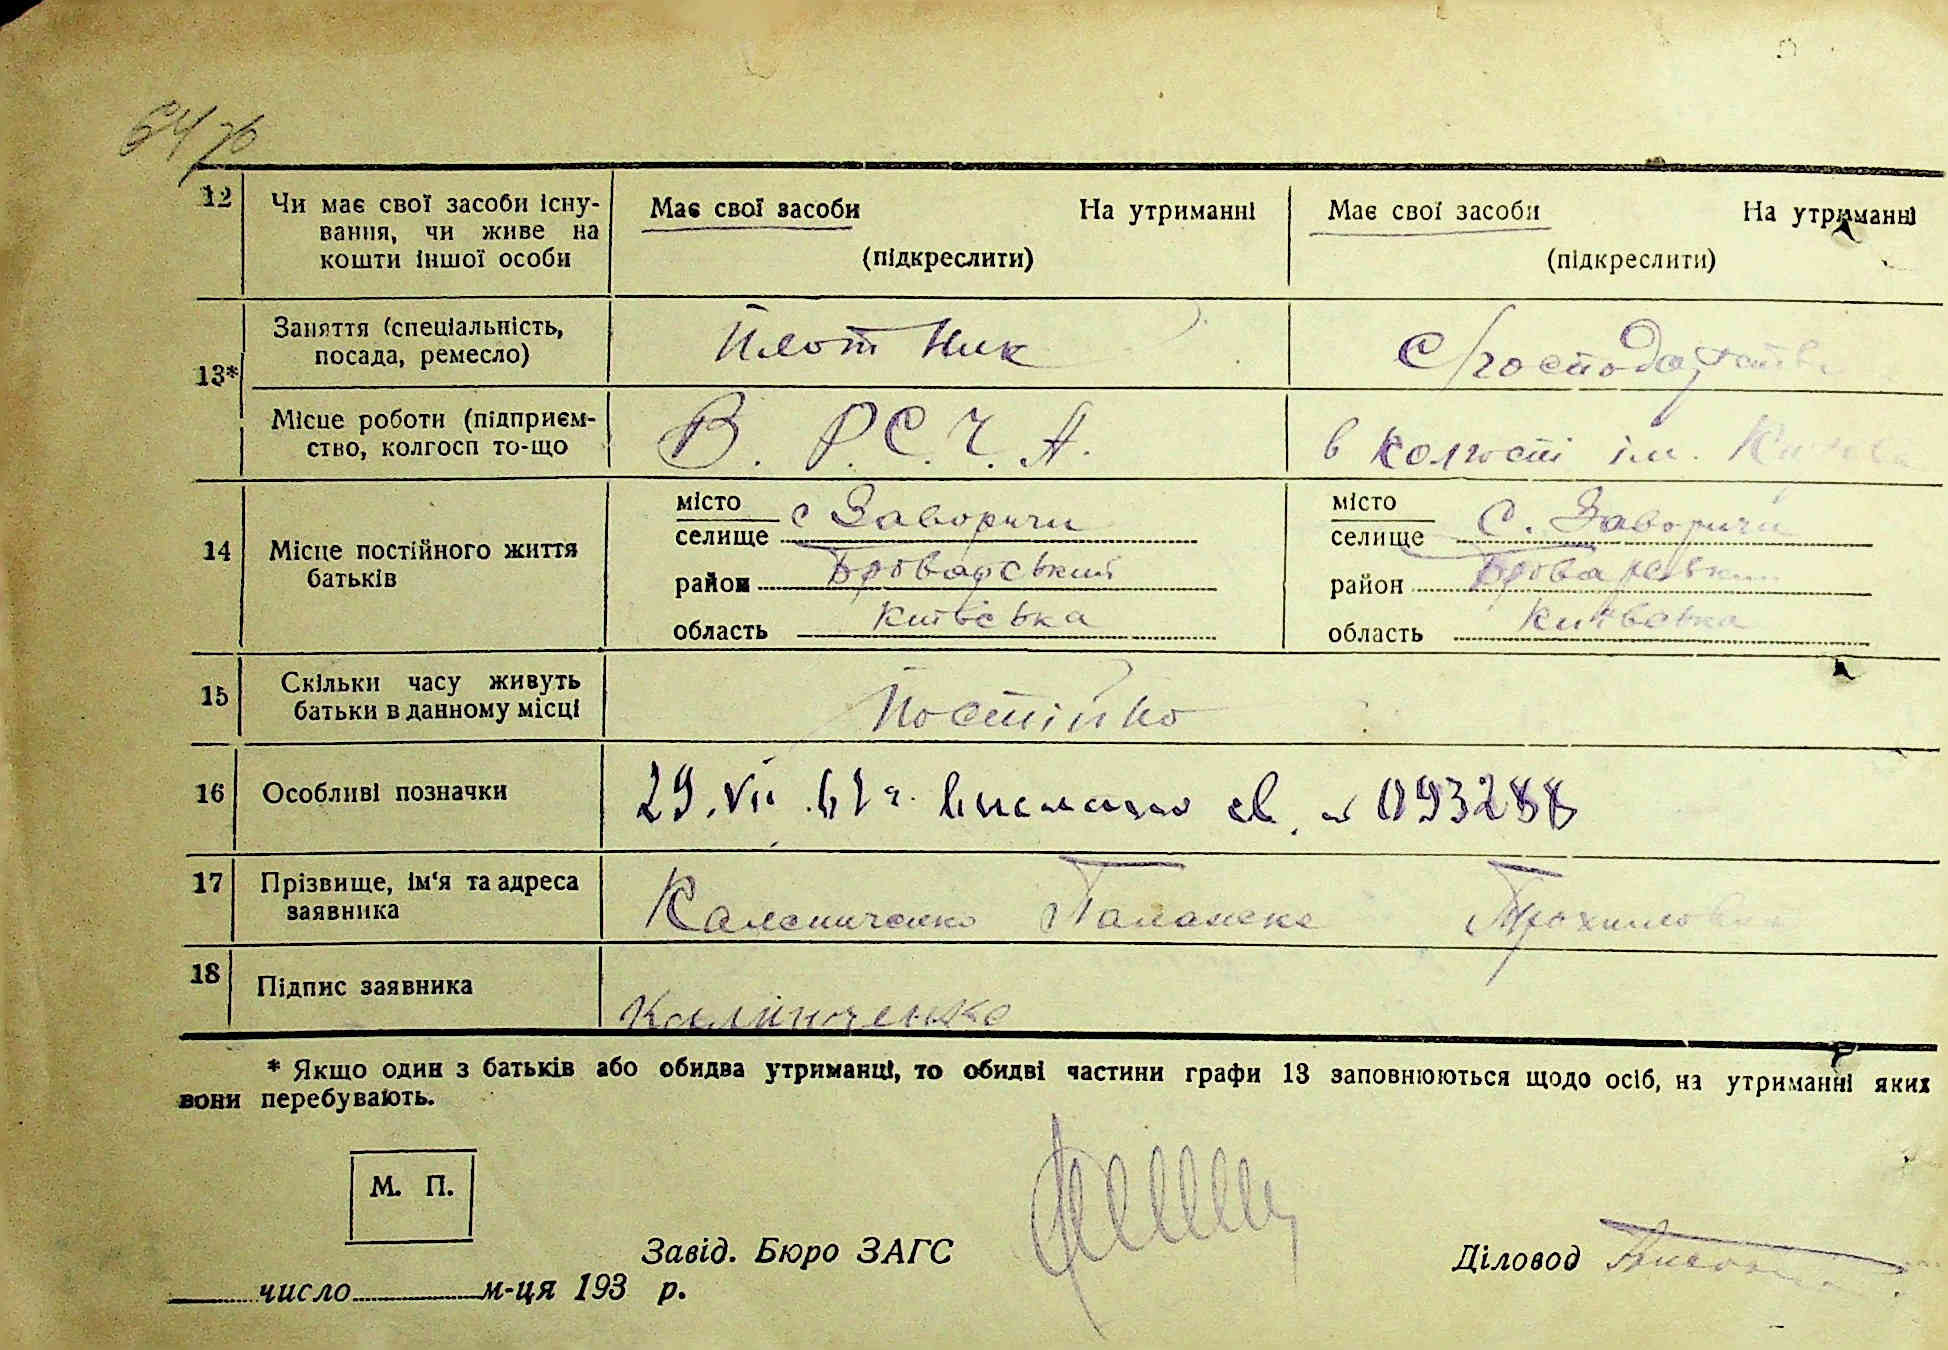 12 Чи має свої засоби існу- Має свої засоби На утриманні Має свої засоби На утриманні
вання, чи живе на
кошти іншої особи (підкреслити) (підкреслити)
13* Заняття (спеціальність, Плотник С/господарстві
посада, ремесло)
Місце роботи (підприєм- В. Р. С. Ч. А. в колгоспі ім. Кірова
ство, колгосп то-що
14 Місце постійного життя батьків
місто
селище с Заворичи
район Броварський
область Київська
місто
селище С. Заворичи
район Броварський
область Київська
15 Скільки часу живуть Постійно
батьки в данному місці
16 Особливі позначки 29. VII . 67 г. выслано св. № 093288
17 Прізвище, ім'я та адреса Калениченко Палажка Трохимовна
заявника
18 Підпис заявника Калініченко
* Якщо один з батьків або обидва утриманці, то обидві частини графи 13 заповнюються щодо осіб, на утриманні яких
вони перебувають.
М. П.
Завід. Бюро ЗАГС Діловод
число м-ця 193 р.